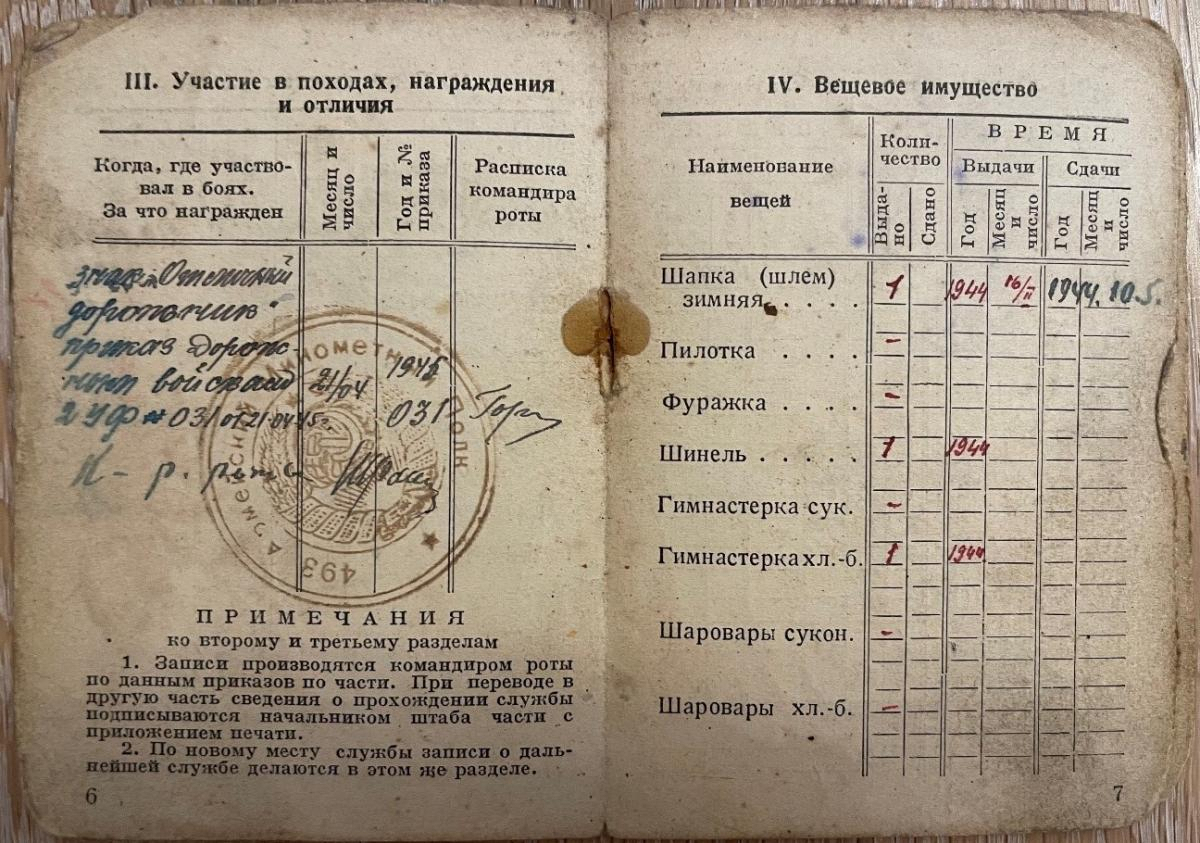 III. Участие в походах, награждения
и отличия
Когда, где участво-
вал в боях.
За что награжден
Месяц и
число
Год и №
приказа
Расписка
командира
роты
знак „Отличный
дорожник"
приказ Дорож-
ным войскам 21/04 1945
2 УФ № 031 от 21.04.45г. 031
К-р. роты
493 АРМЕЙСКИЙ МИНОМЕТН ПОЛК
ПРИМЕЧАНИЯ
ко второму и третьему разделам
1. Записи производятся командиром роты
по данным приказов по части. При переводе в
другую часть сведения о прохождении службы
подписываются начальником штаба части с
приложением печати.
2. По новому месту службы записи о даль-
нейшей службе делаются в этом же разделе.
6
IV. Вещевое имущество
Наименование
вещей
Коли-
чество
Выда-
но
Сдано
ВРЕМЯ
Выдачи
Сдачи
Год
Месяц
и
число
Год
Месяц
и
число
Шапка (шлем)
зимняя . . . . 1 1944 16/II 1944. 10.5.
Пилотка . . . . -
Фуражка . . . . -
Шинель . . . . . 1 1944
Гимнастерка сук. -
Гимнастерка хл.-б. 1 1944
Шаровары сукон. -
Шаровары хл.-б. -
7